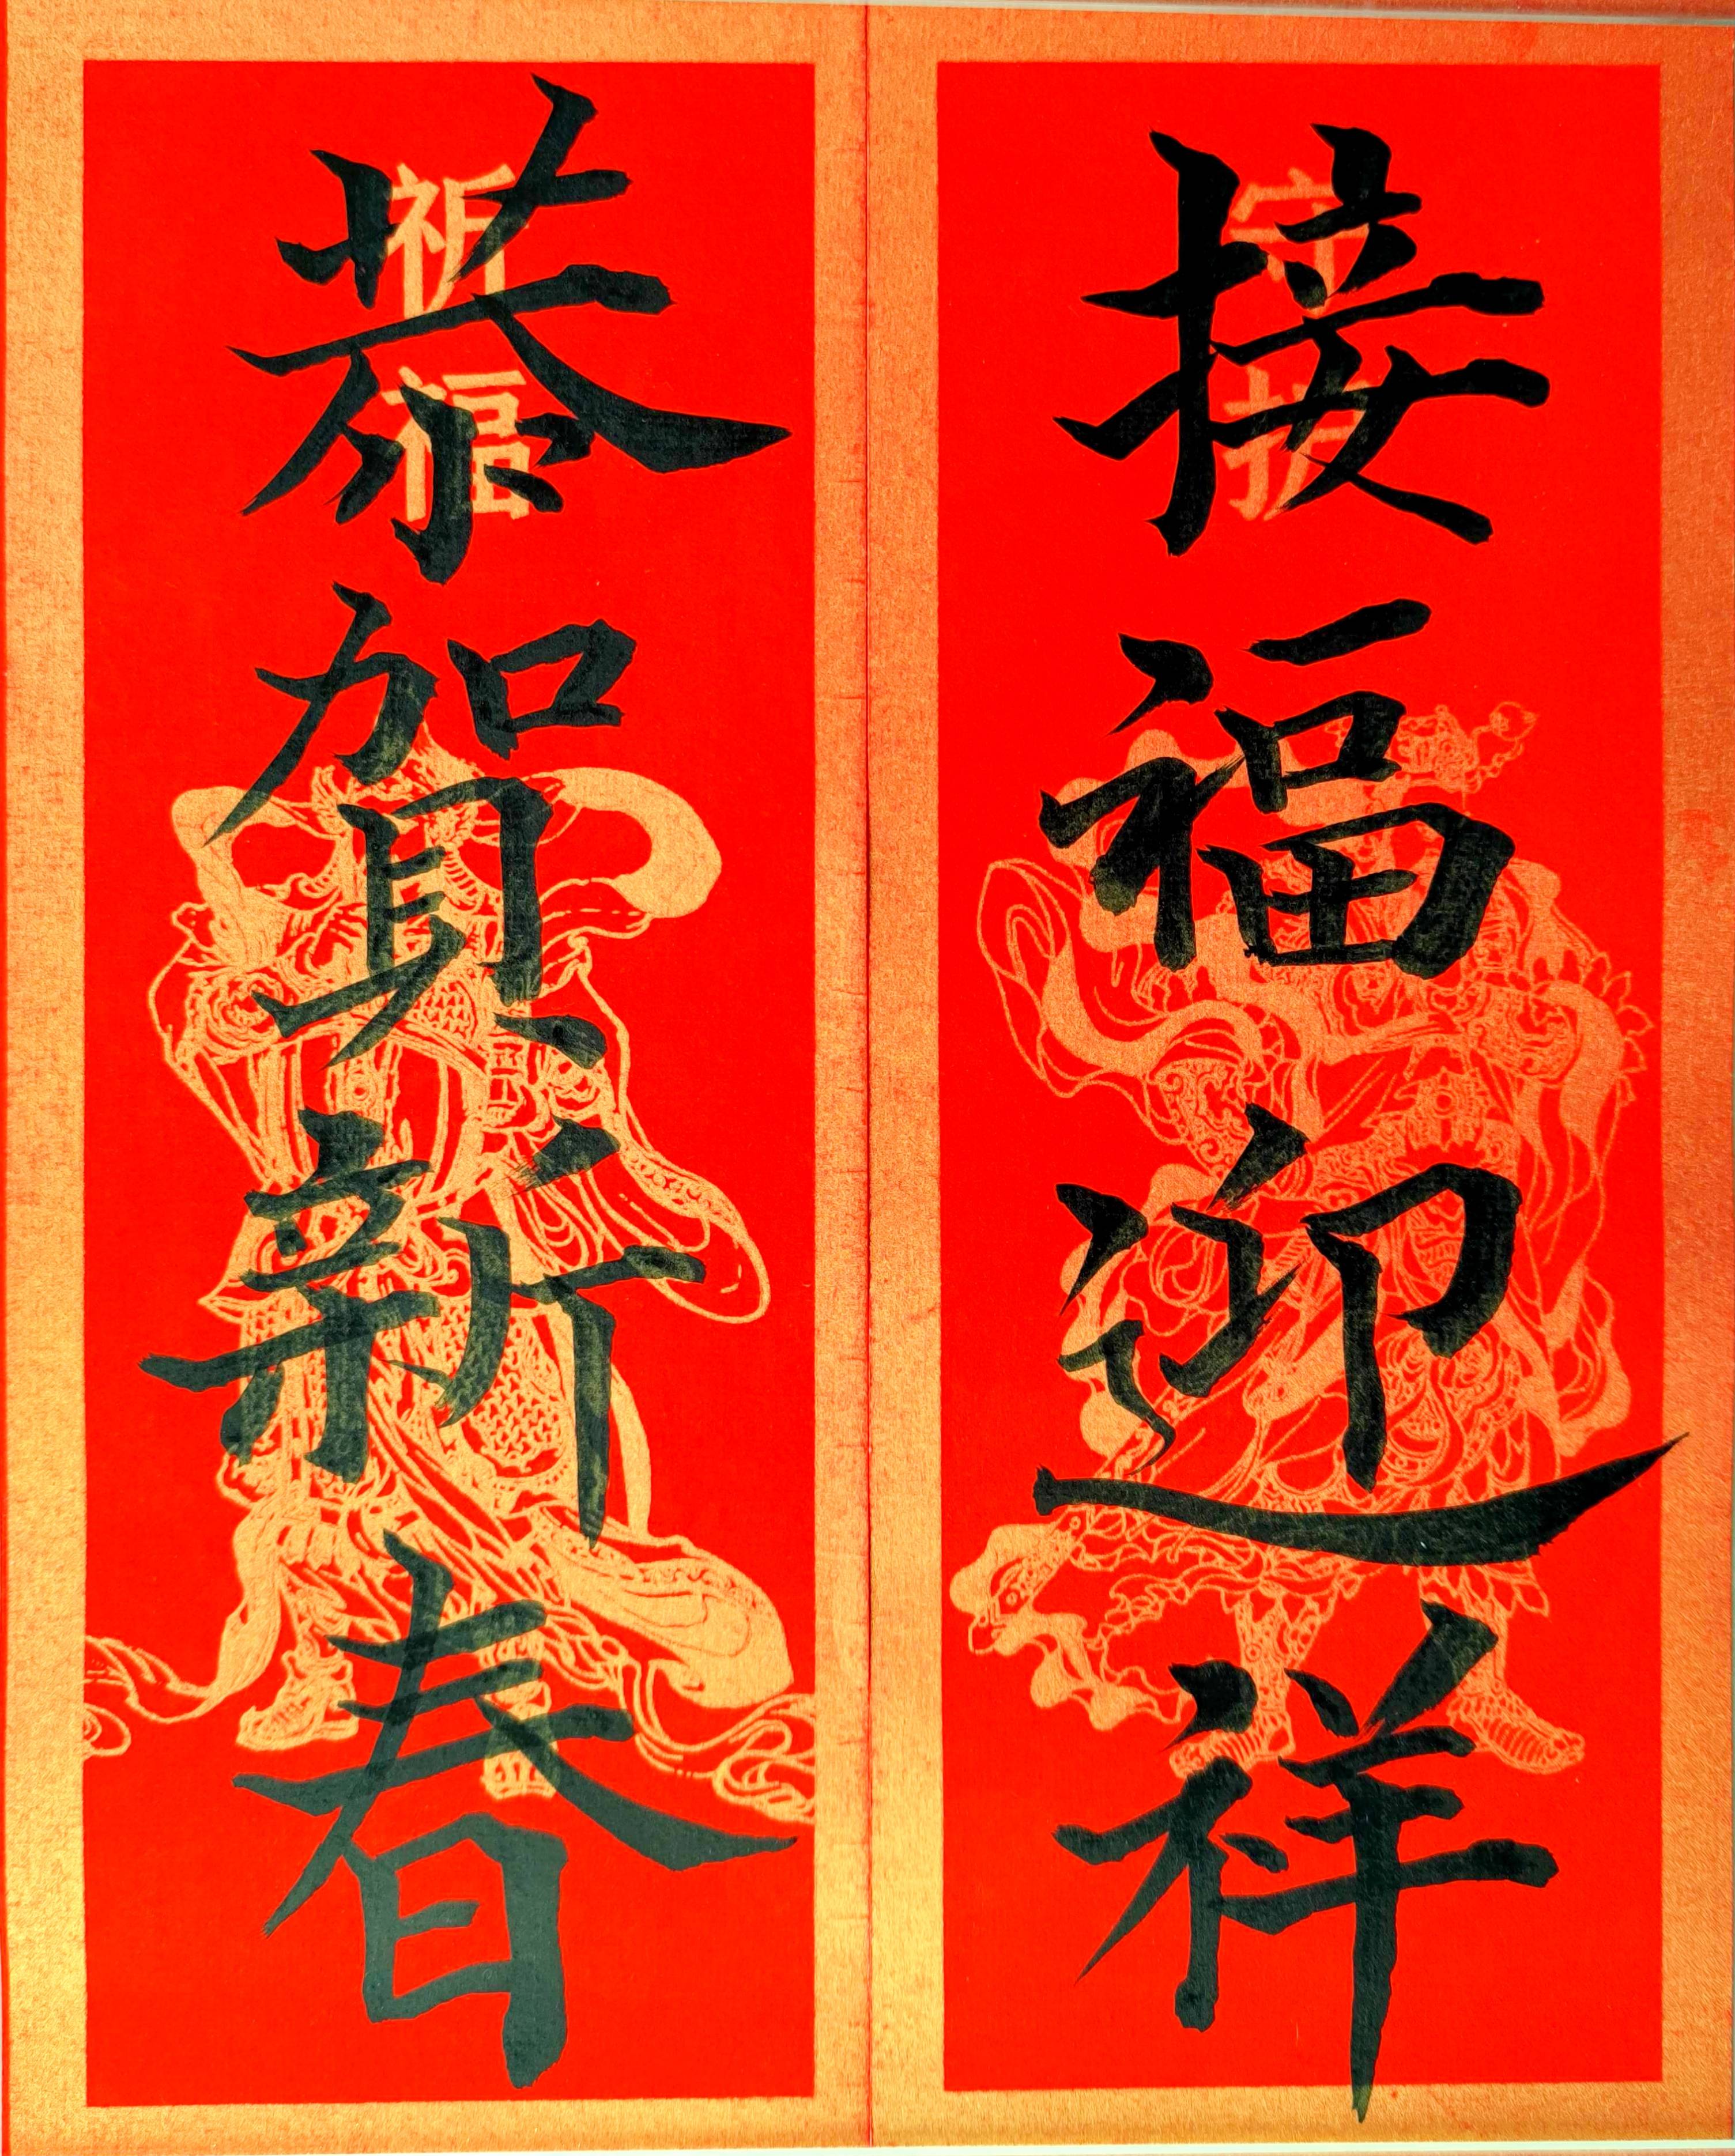 接福迎祥
恭賀新春
守护
祈福